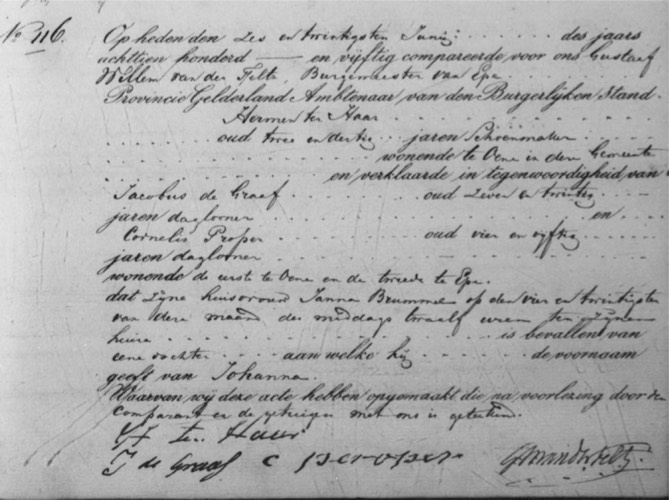 No 116.
Op heden den zes en twintigsten Junij des jaars
achttien honderd en vijftig compareerde voor ons Gustaaf
Willem van der Feltz, Burgemeester van Epe
Provincie Gelderland Ambtenaar van den Burgerlijken Stand
Hermen ter Haar
oud twee en dertig jaren Schoenmaker
wonende te Oene in dese Gemeente
en verklaarde in tegenwoordigheid van
Jacobus de Graaf oud zeven en twintig
jaren daglooner en
Cornelis Proper oud vier en vijftig
jaren daglooner
wonende de eerste te Oene en de tweede te Epe.
dat zijne huisvrouw Janna Brummel op den vier en twintigsten
van deze maand des middags twaalf uren ten zijnen
huize is bevallen van
eene dochter aan welke hij de voornaam
geeft van Johanna
Waarvan wij deze acte hebben opgemaakt die na voorlezing door den
Comparant en de getuigen met ons is geteekend.
H ter Haar
J de Graaf C proper GWvanderFeltz.